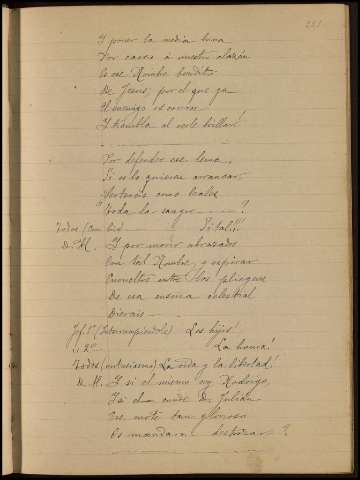 Y poner la media luna
Por casco á vuestro alazán
Es ese Nombre bendito
De Jesús, por el que ya
El enemigo os
Y tiembla al verle brillar!
Por defender ese lema,
Si os lo quisieran arrancar,
Verterais como leales
Toda la sangre ?
Todos (Con Sí tal!!
D. M. Y por morir abrazados
Con tal Nombre, y espirar
Envueltos entre los pliegues
De esa enseña celestial
Dierais
Jf. 1º (Interrumpiéndole) Los hijos!
" 2º La honra!
Todos (entusiasmo) La vida y la libertad!
D. M. Y si el mismo rey Rodrigo,
Y si el conde Dn. Julián
Ese mote tan glorioso
Os mandara destrozar?